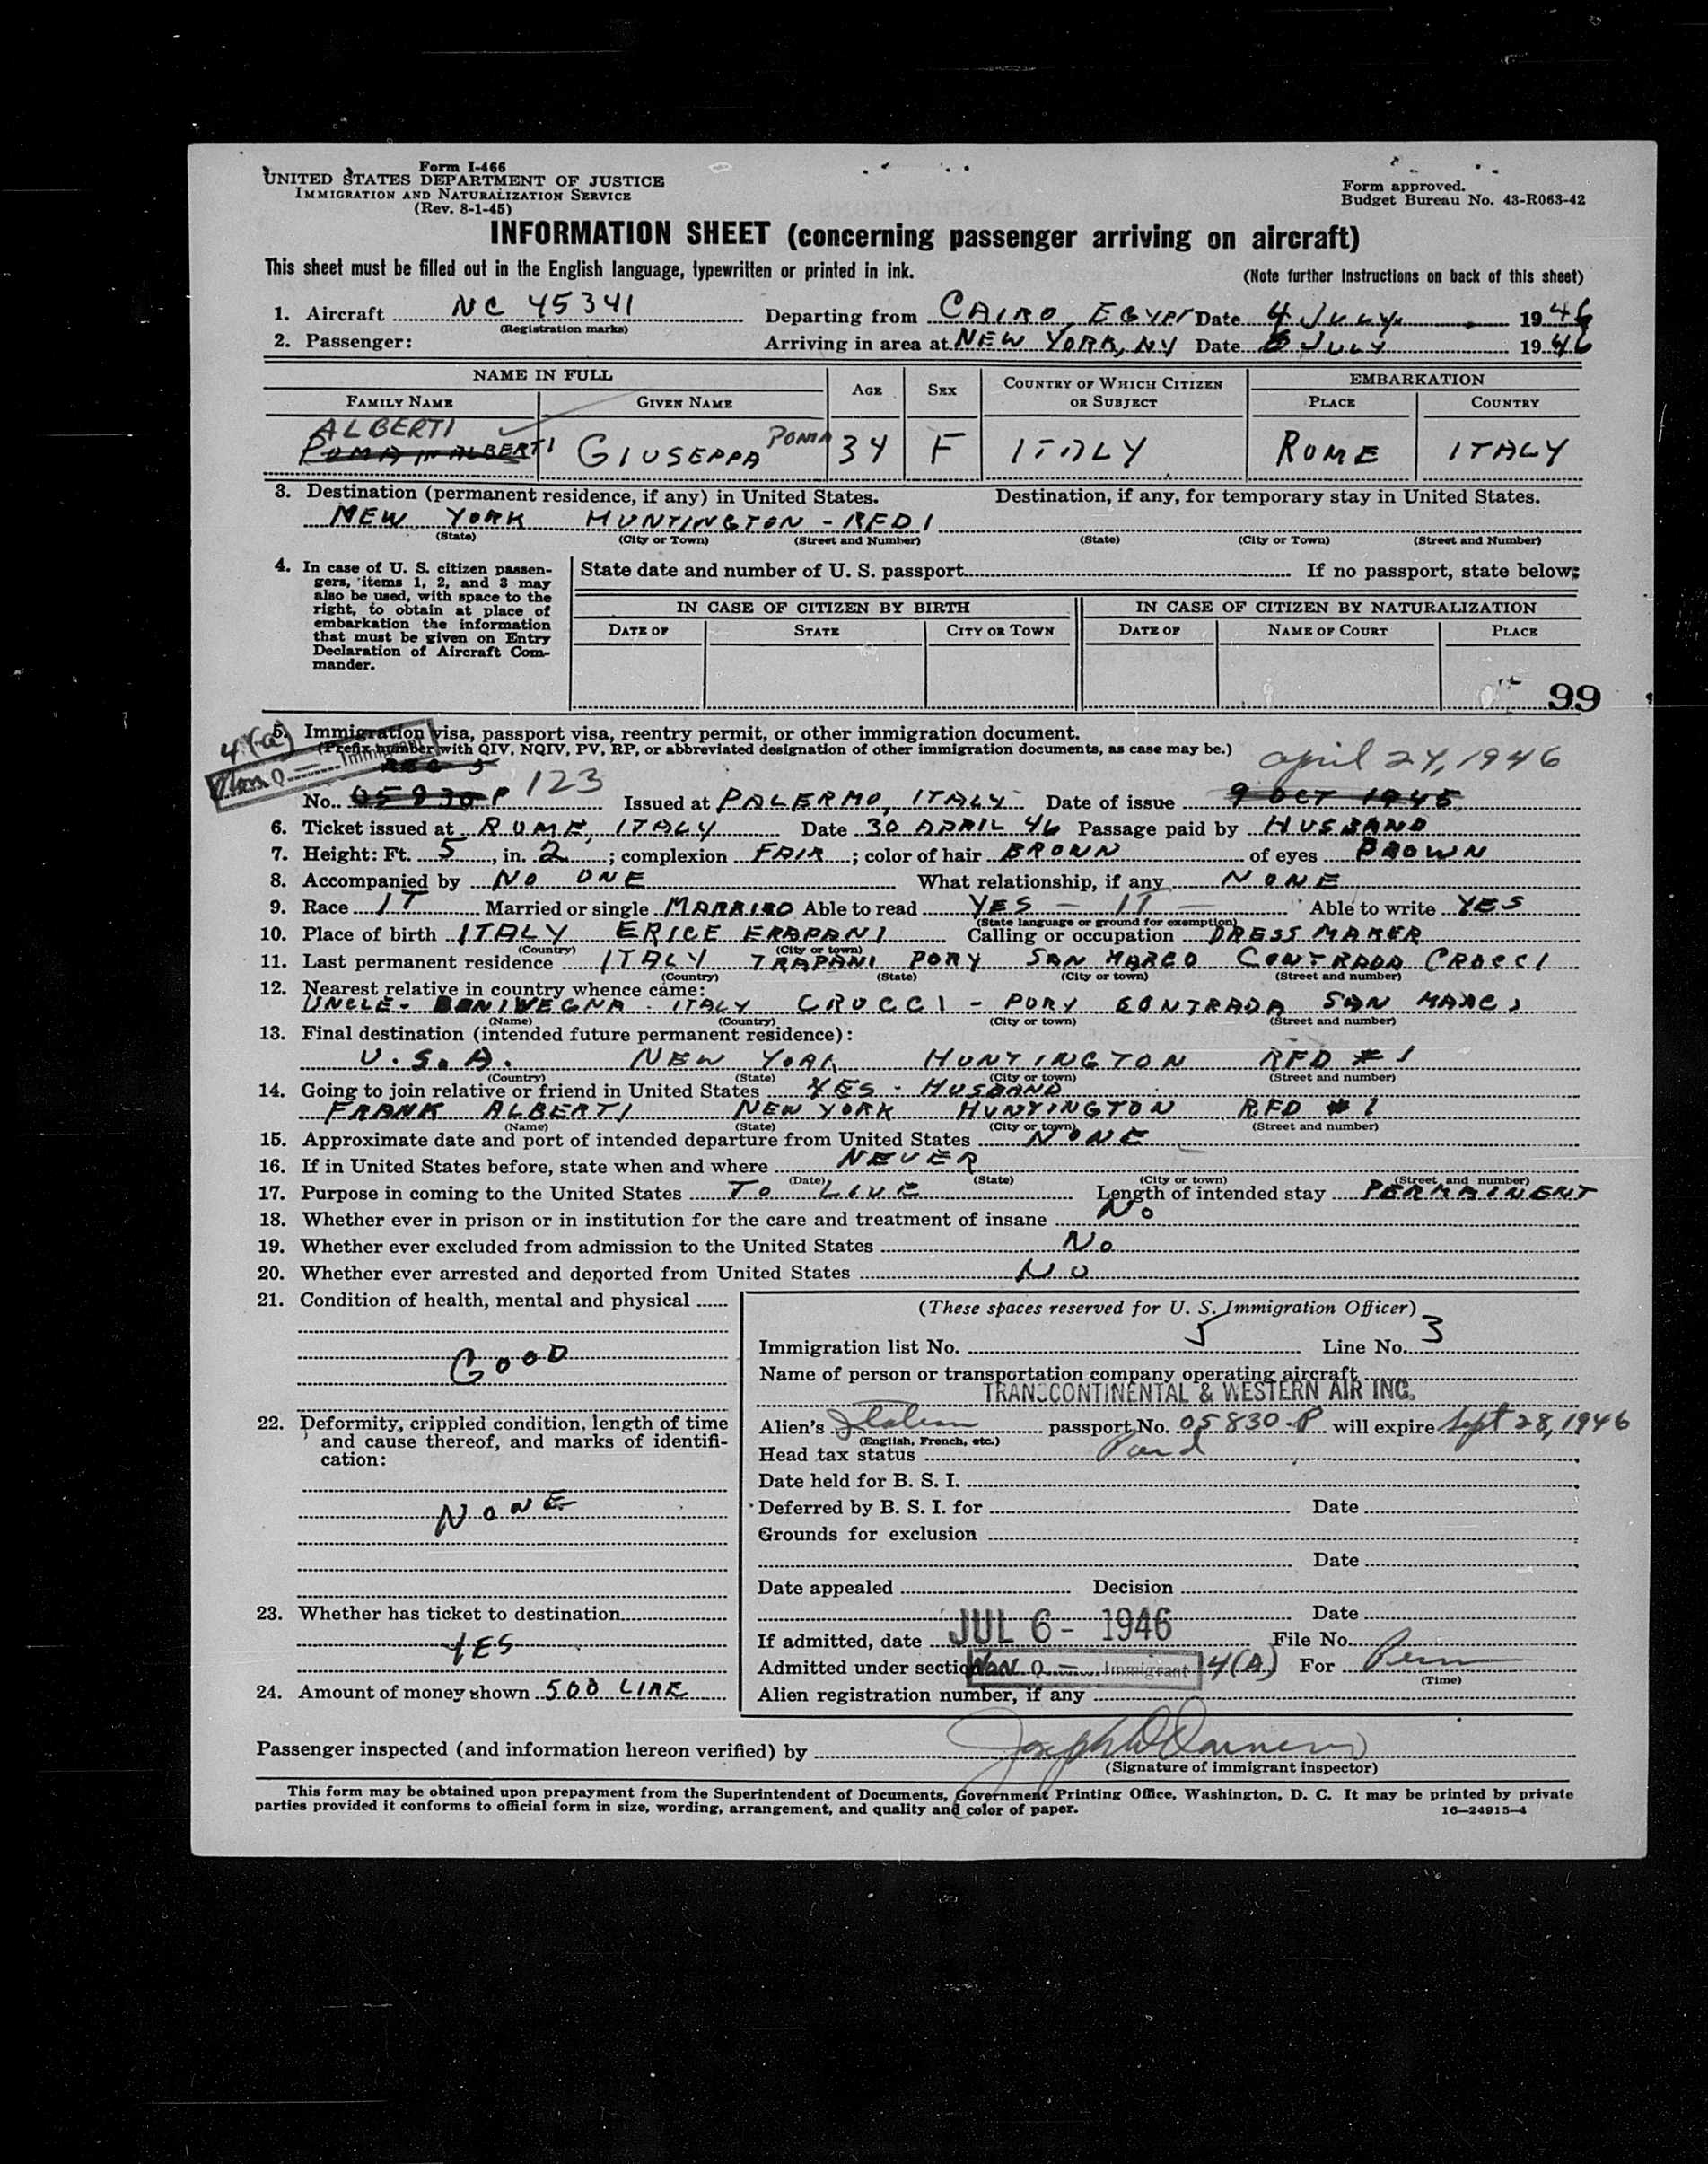 Form I-466
UNITED STATES DEPARTMENT OF JUSTICE
IMMIGRATION AND NATURALIZATION SERVICE
(Rev. 8-1-45)
Form approved.
Budget Bureau No. 43-R063-42
INFORMATION SHEET (concerning passenger arriving on aircraft)
This sheet must be filled out in the English language, typewritten or printed in ink.
(Note further instructions on back of this sheet)
1. Aircraft NC 45341 Departing from CAIRO, EGYPT Date 4 JULY 1946
(Registration marks)
2. Passenger: Arriving in area at NEW YORK, NY Date JULY 1946
NAME IN FULL AGE SEX COUNTRY OF WHICH CITIZEN OR SUBJECT EMBARKATION
FAMILY NAME GIVEN NAME PLACE COUNTRY
ALBERTI
POMA IN ALBERTI GIUSEPPA POMA 34 F ITALY ROME ITALY
3. Destination (permanent residence, if any) in United States. Destination, if any, for temporary stay in United States.
NEW YORK HUNTINGTON - RFD 1
(State) (City or Town) (Street and Number) (State) (City or Town) (Street and Number)
4. In case of U. S. citizen passengers, items 1, 2, and 3 may also be used, with space to the right, to obtain at place of embarkation the information that must be given on Entry Declaration of Aircraft Commander.
State date and number of U. S. passport If no passport, state below:
IN CASE OF CITIZEN BY BIRTH IN CASE OF CITIZEN BY NATURALIZATION
DATE OF STATE CITY OR TOWN DATE OF NAME OF COURT PLACE
99
4(a)
Non Q — Immigrant
5. Immigration visa, passport visa, reentry permit, or other immigration document.
(Prefix number with QIV, NQIV, PV, RP, or abbreviated designation of other immigration documents, as case may be.)
april 24, 1946
No. P 123 Issued at PALERMO, ITALY Date of issue 9 OCT 1945
6. Ticket issued at ROME, ITALY Date 30 APRIL 46 Passage paid by HUSBAND
7. Height: Ft. 5, in. 2; complexion FAIR; color of hair BROWN of eyes BROWN
8. Accompanied by NO ONE What relationship, if any NONE
9. Race IT Married or single MARRIED Able to read YES - IT - Able to write YES
(State language or ground for exemption)
10. Place of birth ITALY ERICE ERAPANI Calling or occupation DRESS MAKER
(Country) (City or town)
11. Last permanent residence ITALY TRAPANI PORY SAN MARCO CONTRADA CROCCI
(Country) (State) (City or town) (Street and number)
12. Nearest relative in country whence came:
UNCLE - ITALY CROCCI - PORY CONTRADA SAN MARCO
(Name) (Country) (City or town) (Street and number)
13. Final destination (intended future permanent residence):
U.S.A. NEW YORK HUNTINGTON RFD # 1
(Country) (State) (City or town) (Street and number)
14. Going to join relative or friend in United States YES - HUSBAND
FRANK ALBERTI NEW YORK HUNTINGTON RFD # 1
(Name) (State) (City or town) (Street and number)
15. Approximate date and port of intended departure from United States NONE
16. If in United States before, state when and where NEVER
(Date) (State) (City or town) (Street and number)
17. Purpose in coming to the United States TO LIVE Length of intended stay PERMAINENT
18. Whether ever in prison or in institution for the care and treatment of insane No
19. Whether ever excluded from admission to the United States No
20. Whether ever arrested and deported from United States NO
21. Condition of health, mental and physical
GOOD
22. Deformity, crippled condition, length of time and cause thereof, and marks of identification:
NONE
23. Whether has ticket to destination
YES
24. Amount of money shown 500 LIRE
(These spaces reserved for U. S. Immigration Officer)
Immigration list No. 5 Line No. 3
Name of person or transportation company operating aircraft
TRANSCONTINENTAL & WESTERN AIR INC.
Alien's Italian passport No. 05830-P will expire Sept 28, 1946
(English, French, etc.)
Head tax status Paid
Date held for B. S. I.
Deferred by B. S. I. for Date
Grounds for exclusion
Date
Date appealed Decision
Date
If admitted, date JUL 6 - 1946 File No.
Admitted under section Non Q — Immigrant 4(A) For Perm
(Time)
Alien registration number, if any
Passenger inspected (and information hereon verified) by
(Signature of immigrant inspector)
This form may be obtained upon prepayment from the Superintendent of Documents, Government Printing Office, Washington, D. C. It may be printed by private
parties provided it conforms to official form in size, wording, arrangement, and quality and color of paper.
16—24915-4